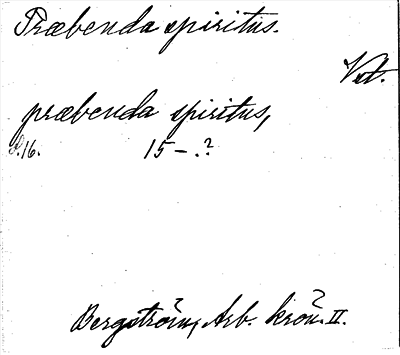 Præbenda spiritus.
Vst.
præbenda spiritus,
S. 16. 15 – . ?
Bergström, Arb. krön. II.